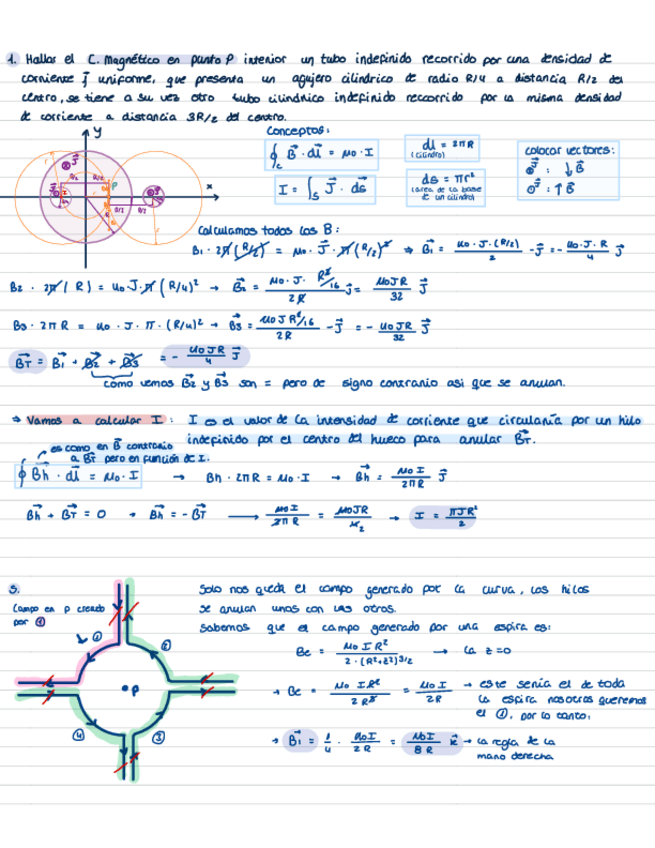 1. Hallar el C. Magnético en punto P interior un tubo indefinido recorrido por una densidad de
corriente J⃗ uniforme, que presenta un agujero cilíndrico de radio R/4 a distancia R/2 del
centro, se tiene a su vez otro tubo cilíndrico indefinido reccorrido por la misma densidad
de corriente a distancia 3R/2 del centro.
y
x
P
R/2
Conceptos:
∮c B⃗ · dl⃗ = μ0 · I
I = ∫s J⃗ · ds⃗
dl = 2πR
(cilindro)
ds = πr²
(area de la base
de un cilindro)
colocar vectores:
⊗J⃗ : ↓B⃗
⊙J⃗ : ↑B⃗
Calculamos todos los B:
B1 · 2π(R/2) = μ0 · J⃗ · π(R/2)² → B⃗1 = μ0 · J · (R/2) / 2 -j⃗ = - μ0 · J · R / 4 j⃗
B2 · 2π(R) = μ0 J · π(R/4)² → B⃗2 = μ0 · J · R²/16 / 2R j⃗ = μ0JR / 32 j⃗
B3 · 2πR = μ0 · J · π · (R/4)² → B⃗3 = μ0JR²/16 / 2R -j⃗ = - μ0JR / 32 j⃗
B⃗T = B⃗1 + B⃗2 + B⃗3 = - μ0JR / 4 j⃗
como vemos B⃗2 y B⃗3 son = pero de signo contrario asi que se anulan.
→ Vamos a calcular I : I es el valor de la intensidad de corriente que circularía por un hilo
indefinido por el centro del hueco para anular B⃗T.
es como en B⃗ contrario
a B⃗T pero en función de I.
∮ B⃗h · dl⃗ = μ0 · I → Bh · 2πR = μ0 · I → B⃗h = μ0 I / 2πR j⃗
B⃗h + B⃗T = 0 → B⃗h = - B⃗T → μ0I / 2πR = μ0JR / 4 2 → I = πJR² / 2
5.
Campo en p creado
por ①
①
②
③
④
P
Solo nos queda el campo generado por la curva, los hilos
se anulan unos con los otros.
Sabemos que el campo generado por una espira es:
Be = μ0 I R² / 2 · (R²+z²)^3/2 → la z=0
→ Be = μ0 I R² / 2 R³ = μ0 I / 2R → este sería el de toda
la espira nosotros queremos
el ①, por lo tanto:
→ B⃗1 = 1/4 · μ0I / 2R = μ0I / 8R k⃗ → la regla de la
mano derecha